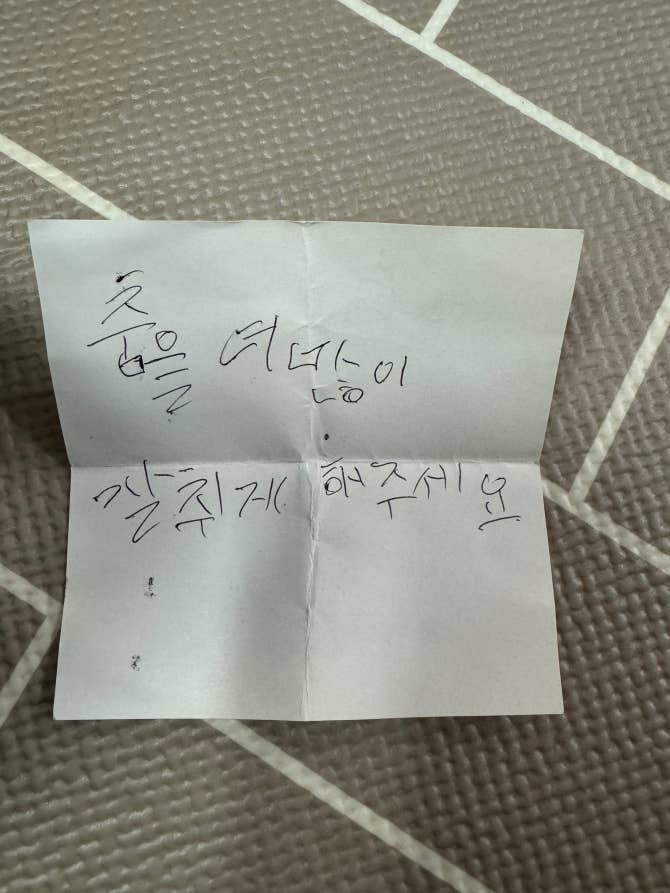 춤을 더 많이
잘 추게 해주세요